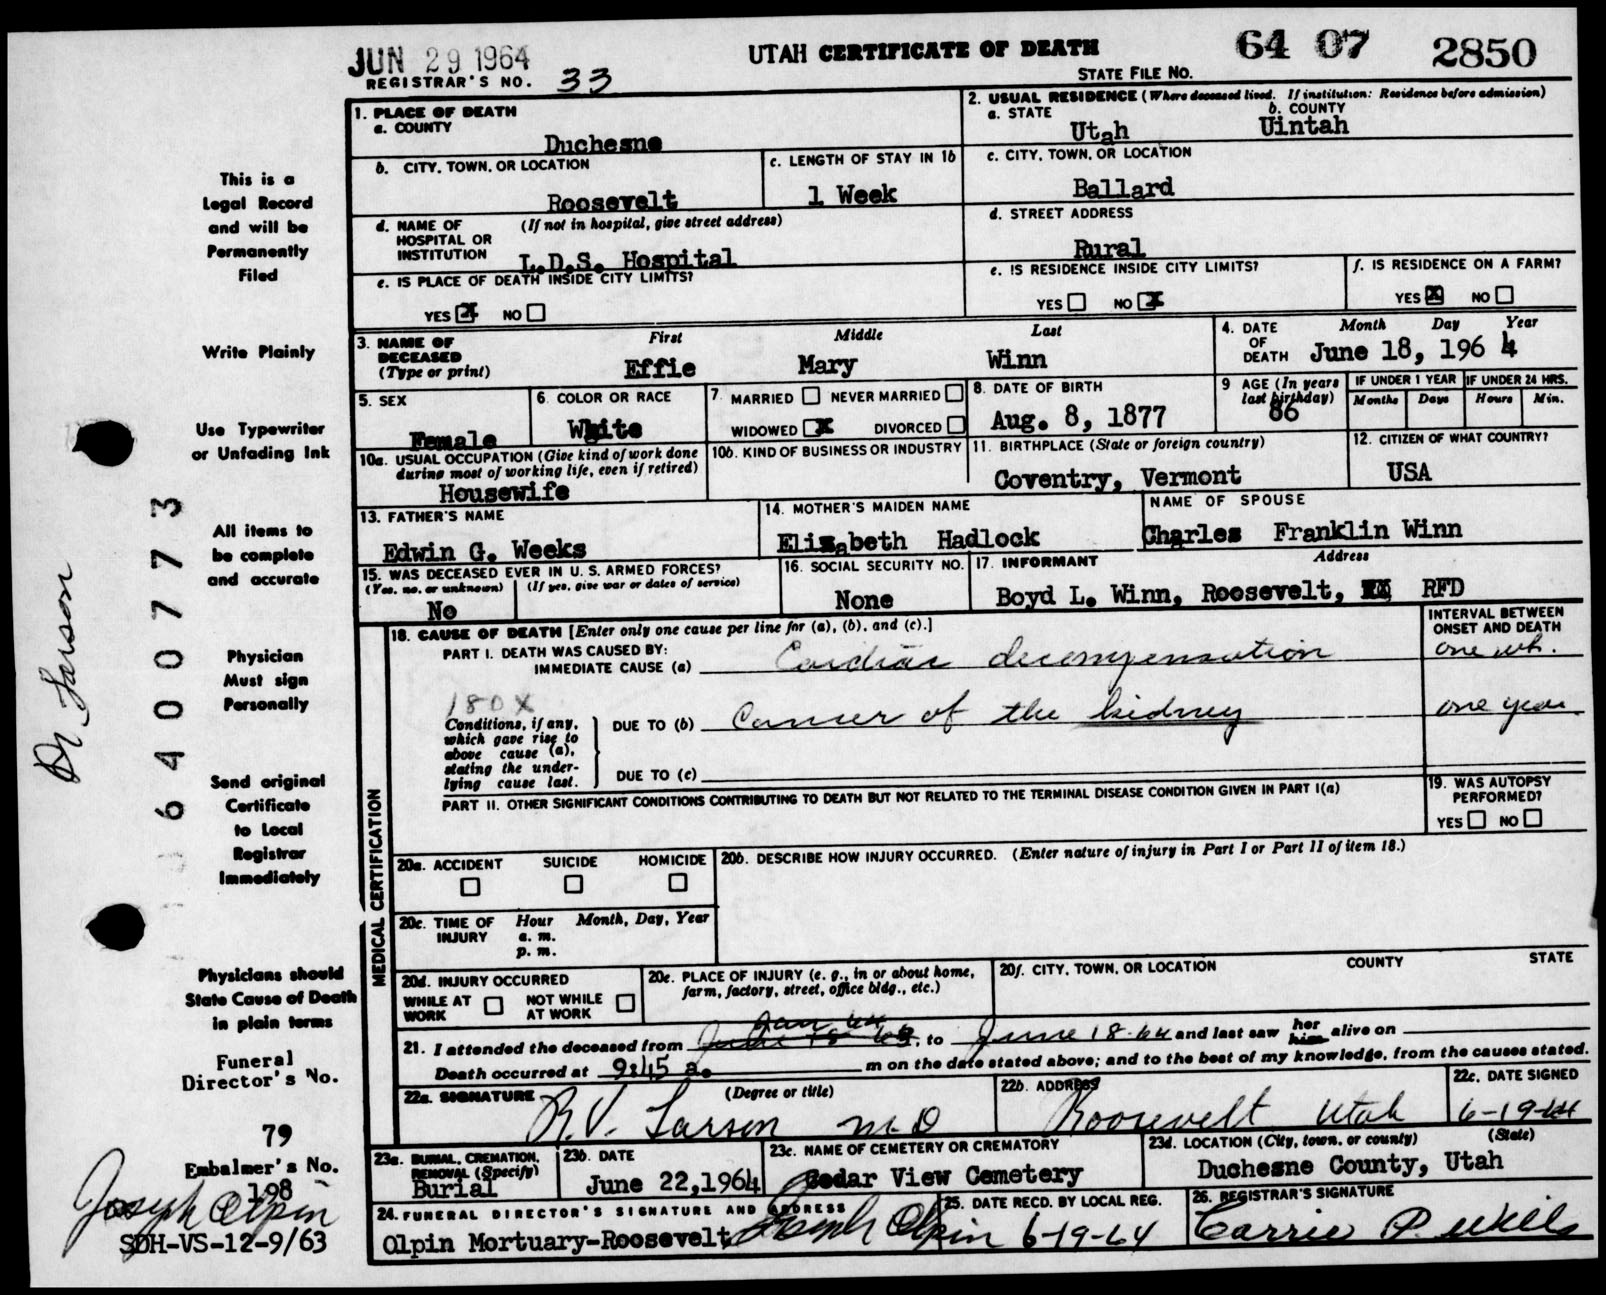 JUN 29 1964
UTAH CERTIFICATE OF DEATH
64 07 2850
REGISTRAR'S NO. 33
STATE FILE NO.
1. PLACE OF DEATH
a. COUNTY
Duchesne
2. USUAL RESIDENCE (Where deceased lived. If institution: Residence before admission)
a. STATE b. COUNTY
Utah Uintah
b. CITY, TOWN, OR LOCATION
Roosevelt
c. LENGTH OF STAY IN 1b
1 Week
c. CITY, TOWN, OR LOCATION
Ballard
d. NAME OF HOSPITAL OR INSTITUTION (If not in hospital, give street address)
L.D.S. Hospital
d. STREET ADDRESS
Rural
e. IS PLACE OF DEATH INSIDE CITY LIMITS?
YES X NO
e. IS RESIDENCE INSIDE CITY LIMITS?
YES NO X
f. IS RESIDENCE ON A FARM?
YES X NO
3. NAME OF DECEASED (Type or print)
First Middle Last
Effie Mary Winn
4. DATE OF DEATH
Month Day Year
June 18, 1964
5. SEX
Female
6. COLOR OR RACE
White
7. MARRIED NEVER MARRIED
WIDOWED X DIVORCED
8. DATE OF BIRTH
Aug. 8, 1877
9 AGE (In years last birthday)
86
IF UNDER 1 YEAR IF UNDER 24 HRS.
Months Days Hours Min.
10a. USUAL OCCUPATION (Give kind of work done during most of working life, even if retired)
Housewife
10b. KIND OF BUSINESS OR INDUSTRY
11. BIRTHPLACE (State or foreign country)
Coventry, Vermont
12. CITIZEN OF WHAT COUNTRY?
USA
13. FATHER'S NAME
Edwin G. Weeks
14. MOTHER'S MAIDEN NAME
Elizabeth Hadlock
NAME OF SPOUSE
Charles Franklin Winn
15. WAS DECEASED EVER IN U. S. ARMED FORCES?
(Yes, no, or unknown) (If yes, give war or dates of service)
No
16. SOCIAL SECURITY NO.
None
17. INFORMANT Address
Boyd L. Winn, Roosevelt, RFD
MEDICAL CERTIFICATION
18. CAUSE OF DEATH [Enter only one cause per line for (a), (b), and (c).]
INTERVAL BETWEEN ONSET AND DEATH
PART I. DEATH WAS CAUSED BY:
IMMEDIATE CAUSE (a) Cardiac decompensation one wk.
180X
Conditions, if any, which gave rise to above cause (a), stating the underlying cause last.
DUE TO (b) Cancer of the kidney one year
DUE TO (c)
PART II. OTHER SIGNIFICANT CONDITIONS CONTRIBUTING TO DEATH BUT NOT RELATED TO THE TERMINAL DISEASE CONDITION GIVEN IN PART I(a)
19. WAS AUTOPSY PERFORMED?
YES NO
20a. ACCIDENT SUICIDE HOMICIDE
20b. DESCRIBE HOW INJURY OCCURRED. (Enter nature of injury in Part I or Part II of item 18.)
20c. TIME OF INJURY Hour Month, Day, Year
a. m.
p. m.
20d. INJURY OCCURRED
WHILE AT WORK NOT WHILE AT WORK
20e. PLACE OF INJURY (e. g., in or about home, farm, factory, street, office bldg., etc.)
20f. CITY, TOWN, OR LOCATION COUNTY STATE
21. I attended the deceased from Jan 64, to June 18-64 and last saw her him alive on
Death occurred at 9:45 a. m on the date stated above; and to the best of my knowledge, from the causes stated.
22a. SIGNATURE (Degree or title)
R.V. Larson M.D
22b. ADDRESS
Roosevelt Utah
22c. DATE SIGNED
6-19-64
23a. BURIAL, CREMATION, REMOVAL (Specify)
Burial
23b. DATE
June 22, 1964
23c. NAME OF CEMETERY OR CREMATORY
Cedar View Cemetery
23d. LOCATION (City, town, or county) (State)
Duchesne County, Utah
24. FUNERAL DIRECTOR'S SIGNATURE AND ADDRESS
Olpin Mortuary-Roosevelt Joseph Olpin
25. DATE RECD. BY LOCAL REG.
6-19-64
26. REGISTRAR'S SIGNATURE
Carrie P. Wills
This is a
Legal Record
and will be
Permanently
Filed
Write Plainly
Use Typewriter
or Unfading Ink
All items to
be complete
and accurate
Physician
Must sign
Personally
Send original
Certificate
to Local
Registrar
Immediately
Physicians should
State Cause of Death
in plain terms
Funeral
Director's No.
79
Embalmer's No.
198
Joseph Olpin
SDH-VS-12-9/63
Dr Larson
6400773